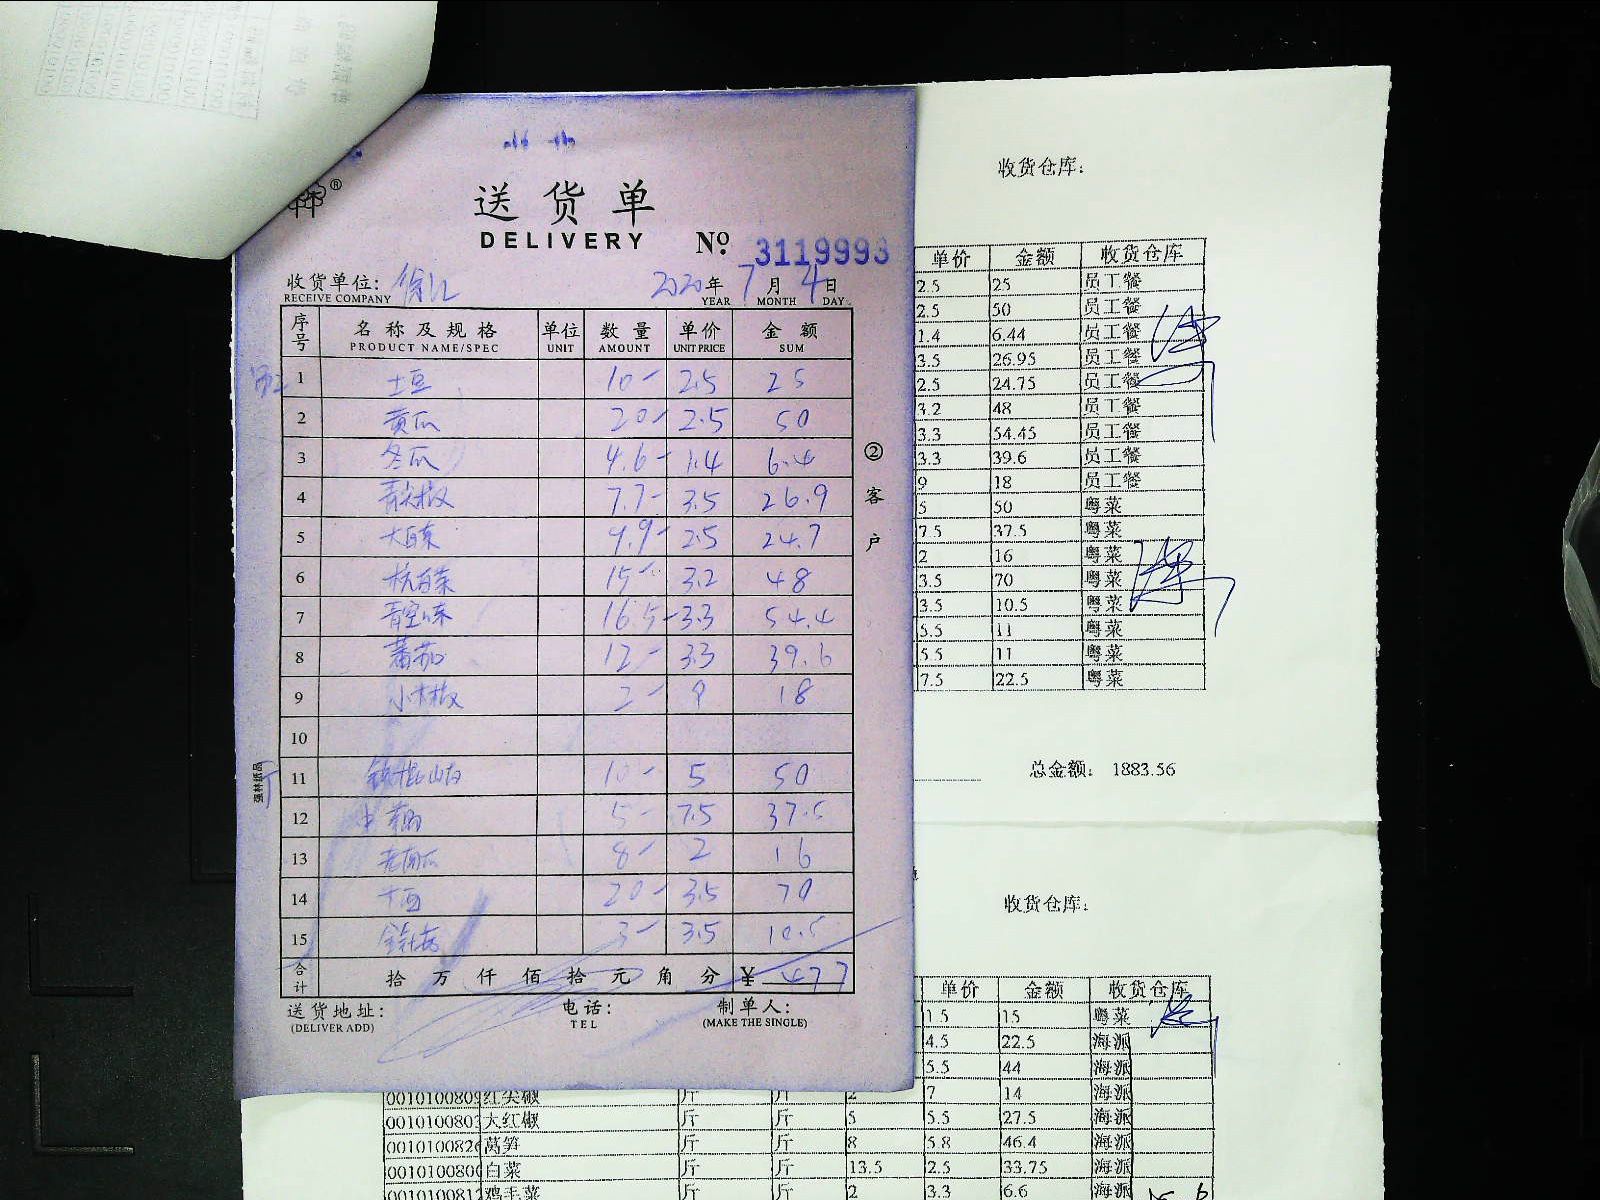 送货单
DELIVERY
№ 3119993
收货单位: 徐汇 2020年7月4日
RECEIVE COMPANY YEAR MONTH DAY
序号 名称及规格 单位 数量 单价 金额
PRODUCT NAME/SPEC UNIT AMOUNT UNIT PRICE SUM
1 土豆 10 - 2.5 25
2 黄瓜 20 - 2.5 50
3 冬瓜 4.6 - 1.4 6.4
4 青尖椒 7.7 - 3.5 26.9
5 大白菜 9.9 - 2.5 24.7
6 杭白菜 15 - 3.2 48
7 青空心菜 16.5 - 3.3 54.4
8 蕃茄 12 - 3.3 39.6
9 小米椒 2 - 9 18
10
11 铁棍山药 10 - 5 50
12 5 - 7.5 37.5
13 老南瓜 8 - 2 16
14 20 - 3.5 70
15 3 - 3.5 10.5
合计 拾万仟佰拾元角分 ¥ 477
送货地址: 电话: 制单人:
(DELIVER ADD) TEL (MAKE THE SINGLE)
②客户
强林纸品
收货仓库:
单价 金额 收货仓库
2.5 25 员工餐
2.5 50 员工餐
1.4 6.44 员工餐
3.5 26.95 员工餐
2.5 24.75 员工餐
3.2 48 员工餐
3.3 54.45 员工餐
3.3 39.6 员工餐
9 18 员工餐
5 50 粤菜
7.5 37.5 粤菜
2 16 粤菜
3.5 70 粤菜
3.5 10.5 粤菜
5.5 11 粤菜
5.5 11 粤菜
7.5 22.5 粤菜
总金额: 1883.56
收货仓库:
单价 金额 收货仓库
1.5 15 粤菜
4.5 22.5 海派
5.5 44 海派
0010100809 红尖椒 斤 斤 2 7 14 海派
0010100803 大红椒 斤 斤 5 5.5 27.5 海派
0010100826 莴笋 斤 斤 8 5.8 46.4 海派
0010100800 白菜 斤 斤 13.5 2.5 33.75 海派
0010100812 鸡毛菜 斤 斤 2 3.3 6.6 海派